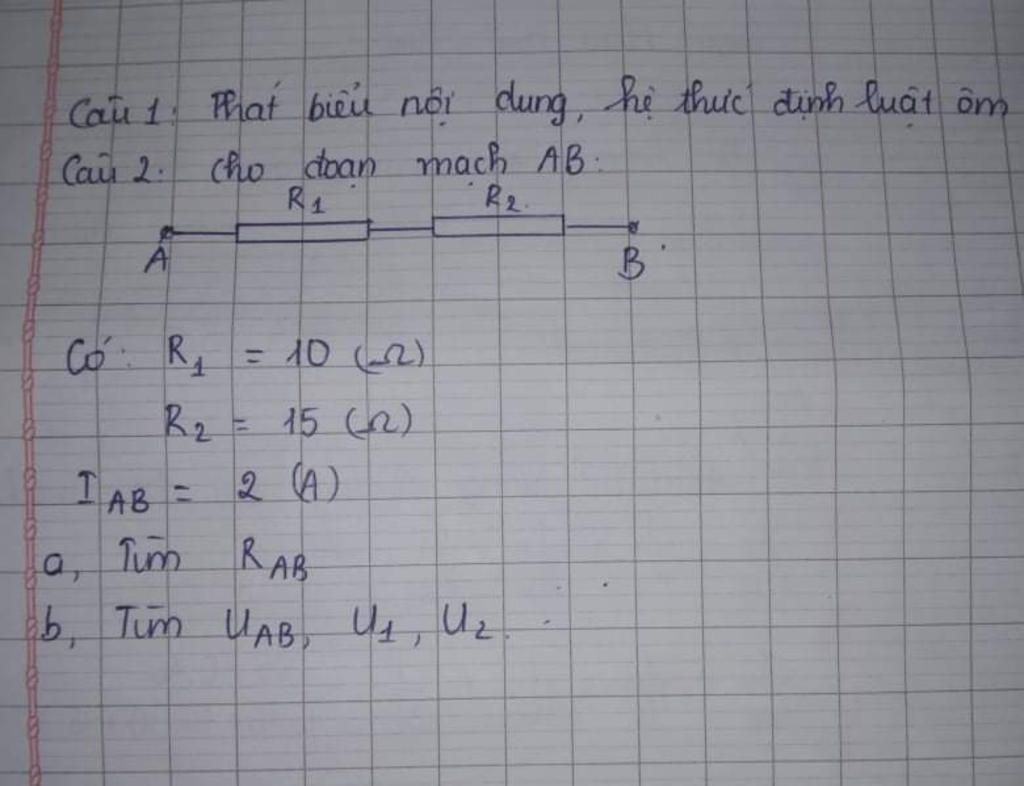 Câu 1: Phát biểu nội dung, hệ thức định luật ôm
Câu 2: Cho đoạn mạch AB:
R1 R2
A B
Có: R1 = 10 (Ω)
R2 = 15 (Ω)
I AB = 2 (A)
a, Tìm RAB
b, Tìm UAB, U1, U2.